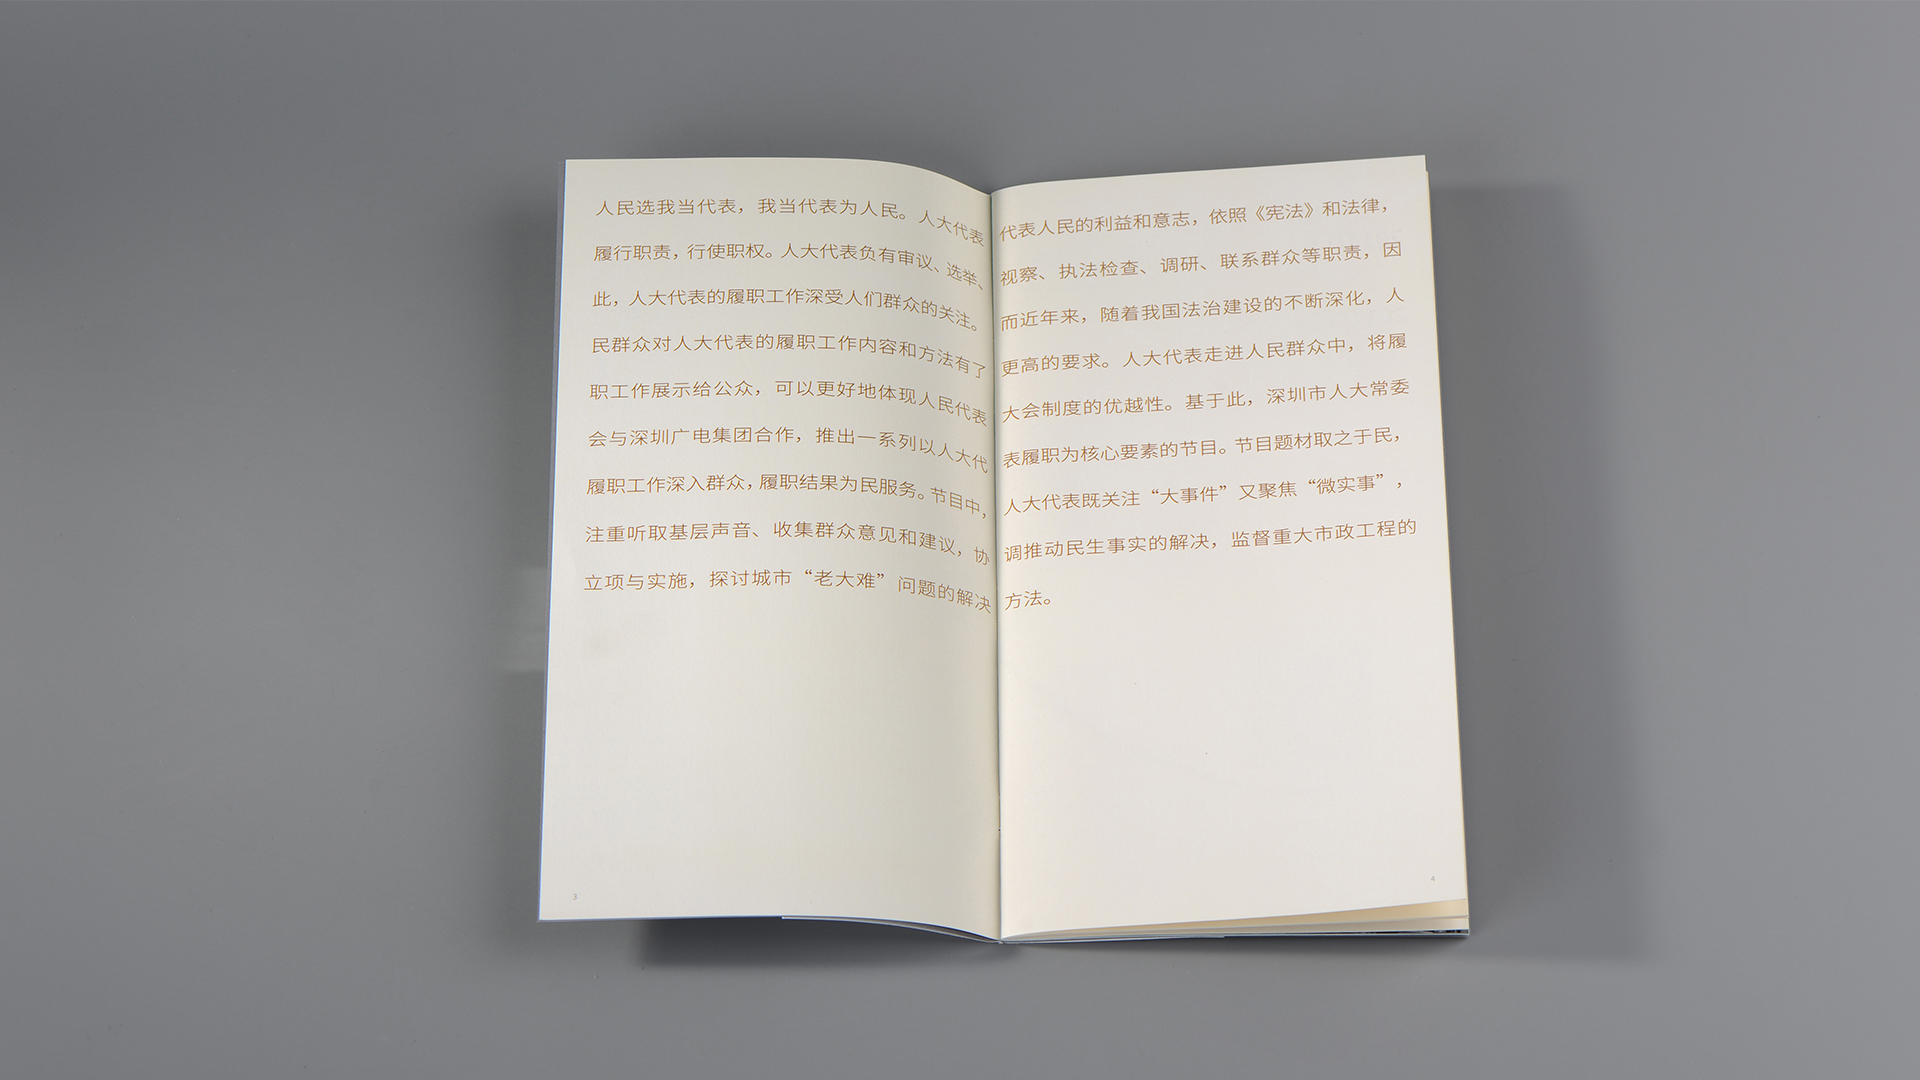 人民选我当代表，我当代表为人民。人大代表代表人民的利益和意志，依照《宪法》和法律，
履行职责，行使职权。人大代表负有审议、选举、视察、执法检查、调研、联系群众等职责，因
此，人大代表的履职工作深受人们群众的关注。而近年来，随着我国法治建设的不断深化，人
民群众对人大代表的履职工作内容和方法有了更高的要求。人大代表走进人民群众中，将履
职工作展示给公众，可以更好地体现人民代表大会制度的优越性。基于此，深圳市人大常委
会与深圳广电集团合作，推出一系列以人大代表履职为核心要素的节目。节目题材取之于民，
履职工作深入群众，履职结果为民服务。节目中，人大代表既关注“大事件”又聚焦“微实事”，
注重听取基层声音、收集群众意见和建议，协调推动民生事实的解决，监督重大市政工程的
立项与实施，探讨城市“老大难”问题的解决方法。
3
4